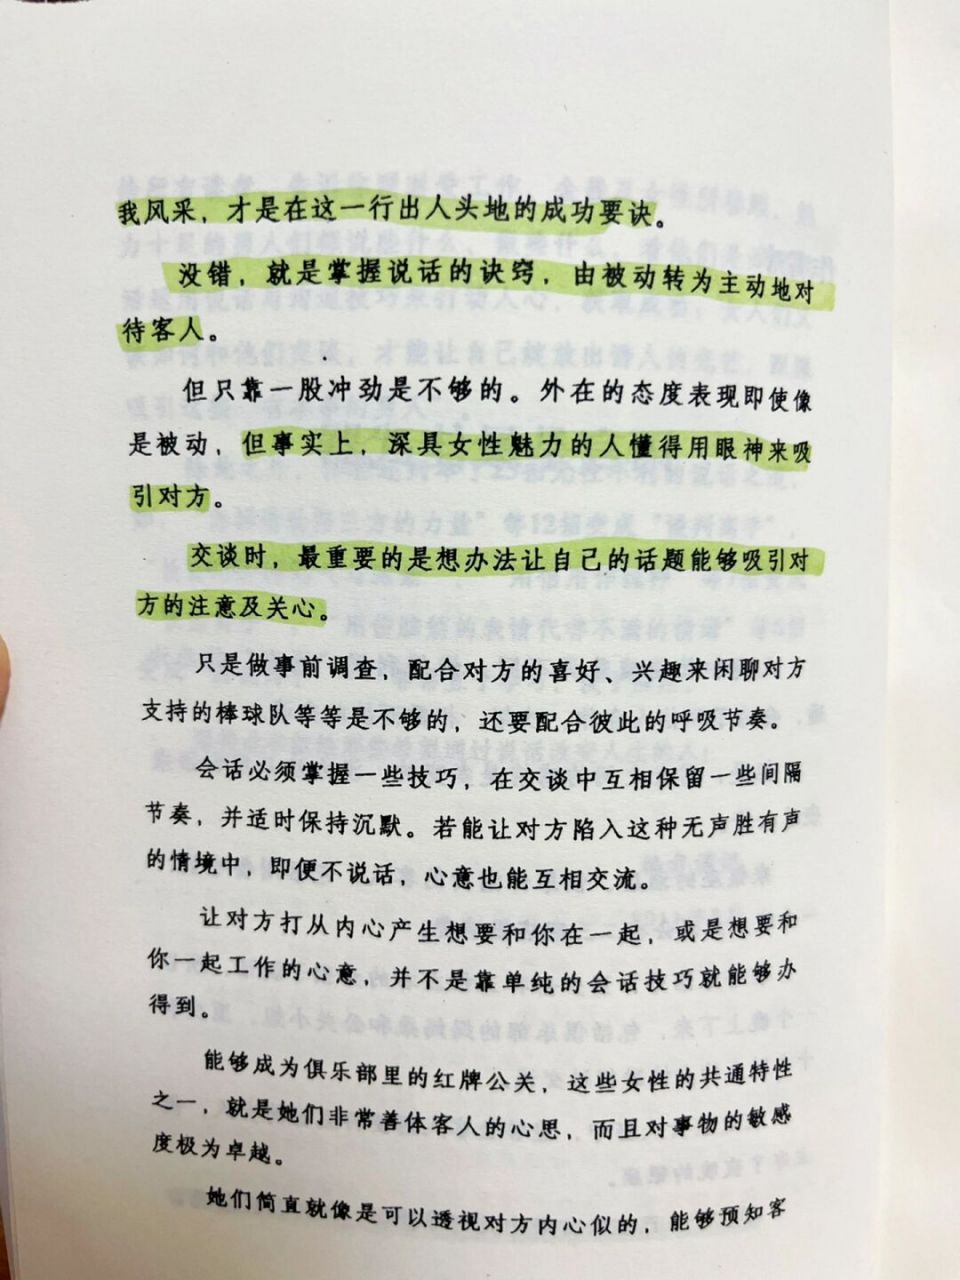 我风采，才是在这一行出人头地的成功要诀。
没错，就是掌握说话的诀窍，由被动转为主动地对
待客人。
但只靠一股冲劲是不够的。外在的态度表现即使像
是被动，但事实上，深具女性魅力的人懂得用眼神来吸
引对方。
交谈时，最重要的是想办法让自己的话题能够吸引对
方的注意及关心。
只是做事前调查，配合对方的喜好、兴趣来闲聊对方
支持的棒球队等等是不够的，还要配合彼此的呼吸节奏。
会话必须掌握一些技巧，在交谈中互相保留一些间隔
节奏，并适时保持沉默。若能让对方陷入这种无声胜有声
的情境中，即便不说话，心意也能互相交流。
让对方打从内心产生想要和你在一起，或是想要和
你一起工作的心意，并不是靠单纯的会话技巧就能够办
得到。
能够成为俱乐部里的红牌公关，这些女性的共通特性
之一，就是她们非常善体客人的心思，而且对事物的敏感
度极为卓越。
她们简直就像是可以透视对方内心似的，能够预知客